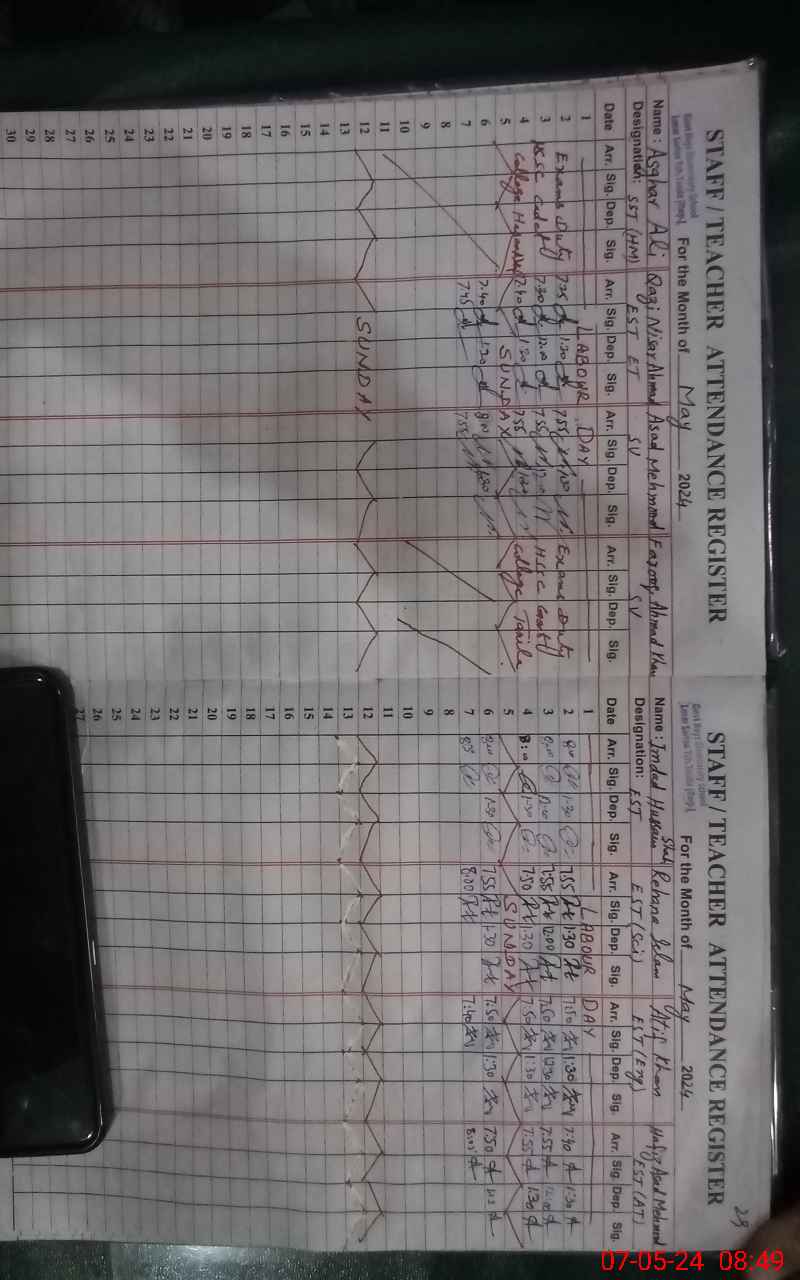 STAFF / TEACHER ATTENDANCE REGISTER
For the Month of May 2024
Name: Asghar Ali Qazi Nisar Ahmad Asad Mehmood Farooq Ahmad Khan
Designation: SST (HM) EST ET SV SV
Date Arr. Sig. Dep. Sig. Arr. Sig. Dep. Sig. Arr. Sig. Dep. Sig. Arr. Sig. Dep. Sig.
1 LABOUR DAY
2 Exams Duty 7.25 1:30 7.55 1:30 Exams Duty
3 HSSC Cadet 7.30 12.00 7.55 12:00 HSSC Govt
4 College 7.40 1:30 7.55 College Taxila
5 SUNDAY
6 7.40 1:30 8:00 1:30
7 7.45 7.55
8
9
10
11
12 SUNDAY
13
14
15
16
17
18
19
20
21
22
23
24
25
26
27
28
29
30
STAFF / TEACHER ATTENDANCE REGISTER
29
For the Month of May 2024
Name: Imdad Hussain Shah Rehana Islam Atif Khan Hafiz Asad Mehmood
Designation: EST EST (Sci) EST (Eng) EST (AT)
Date Arr. Sig. Dep. Sig. Arr. Sig. Dep. Sig. Arr. Sig. Dep. Sig. Arr. Sig. Dep. Sig.
1 LABOUR DAY
2 8:00 1:30 7.55 1:30 7:50 1:30 7:40 1:30
3 8:00 12:00 7:55 12:00 7:50 12:30 7:55 12:00
4 8:00 1:30 7:50 1:30 7:50 1:30 7:55 1:30
5 SUNDAY
6 8:00 1:30 7:55 1:30 7:50 1:30 7:50
7 8:00 8:00 7:40 8:00
8
9
10
11
12
13
14
15
16
17
18
19
20
21
22
23
24
25
26
27
07-05-24 08:49